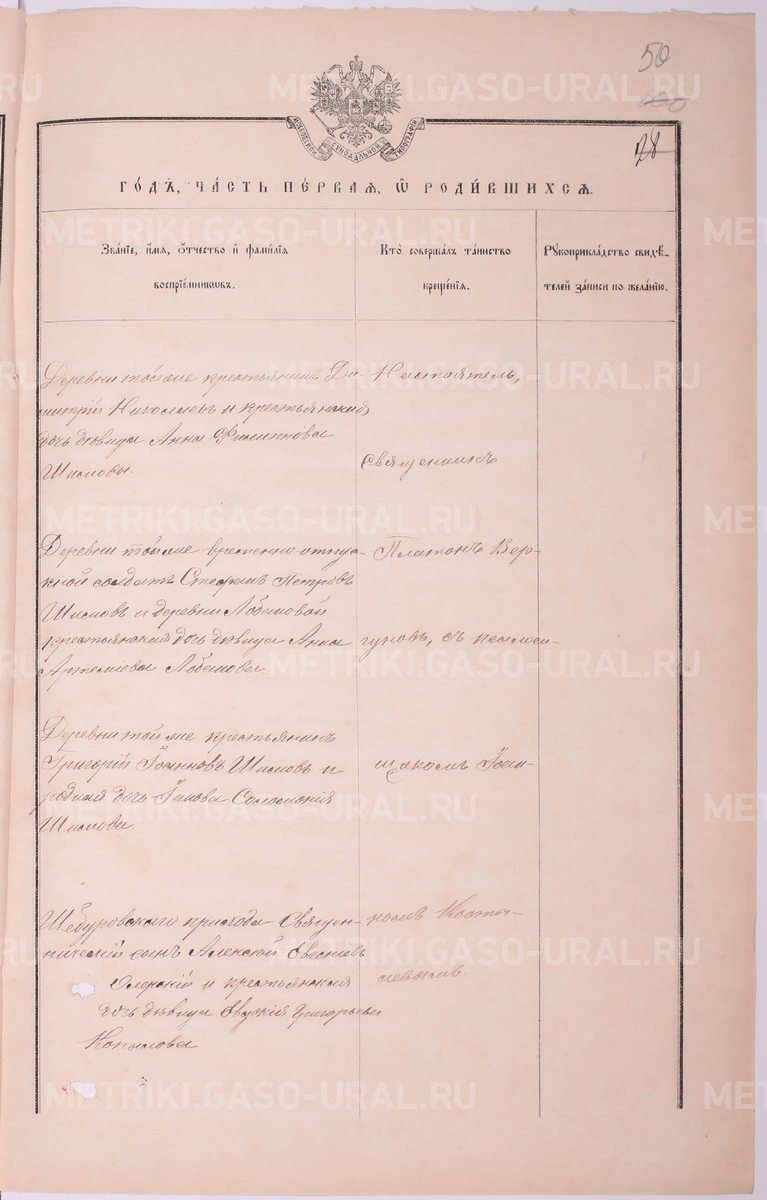 50
100
28
МОСКОВСКОЙ СУНОДАЛЬНОЙ ТИПОГРАФІИ
ГО́ДЪ, ЧА́СТЬ ПЕ́РВАЯ, Ѡ҆ РОДИ́ВШИХСЯ.
Зва́нїе, и҆́мя, ѻ҆́тчество и҆ фами́лїя
воспрїе́мниковъ.
Кто̀ соверша́лъ та́инство
креще́нїя.
Рꙋкоприкла́дство свидѣ́-
телей за́писи по жела́нїю.
Деревни той же крестьянинъ Ди-
митрій Николаевъ и крестьянская
дочь дѣвица Анна Филиппова
Шиловы.
Настоятель,
Священникъ
Деревни той же временно отпус-
кной солдатъ Стефанъ Петровъ
Шиловъ и деревни Лобановой
крестьянская дочь дѣвица Анна
Артеміева Лобанова
Платонъ Вер-
гуновъ, съ псалом-
Деревни той же крестьянинъ
Григорій Іоанновъ Шиловъ и
родная дочь Іакова Соломонія
Шилова.
щикомъ Іоан-
Шабуровскаго прихода Священ-
ническій сынъ Алексій
и крестьянская
дочь дѣвица Григорьева
Копылова
номъ Косты-
левымъ
METRIKI.GASO-URAL.RU